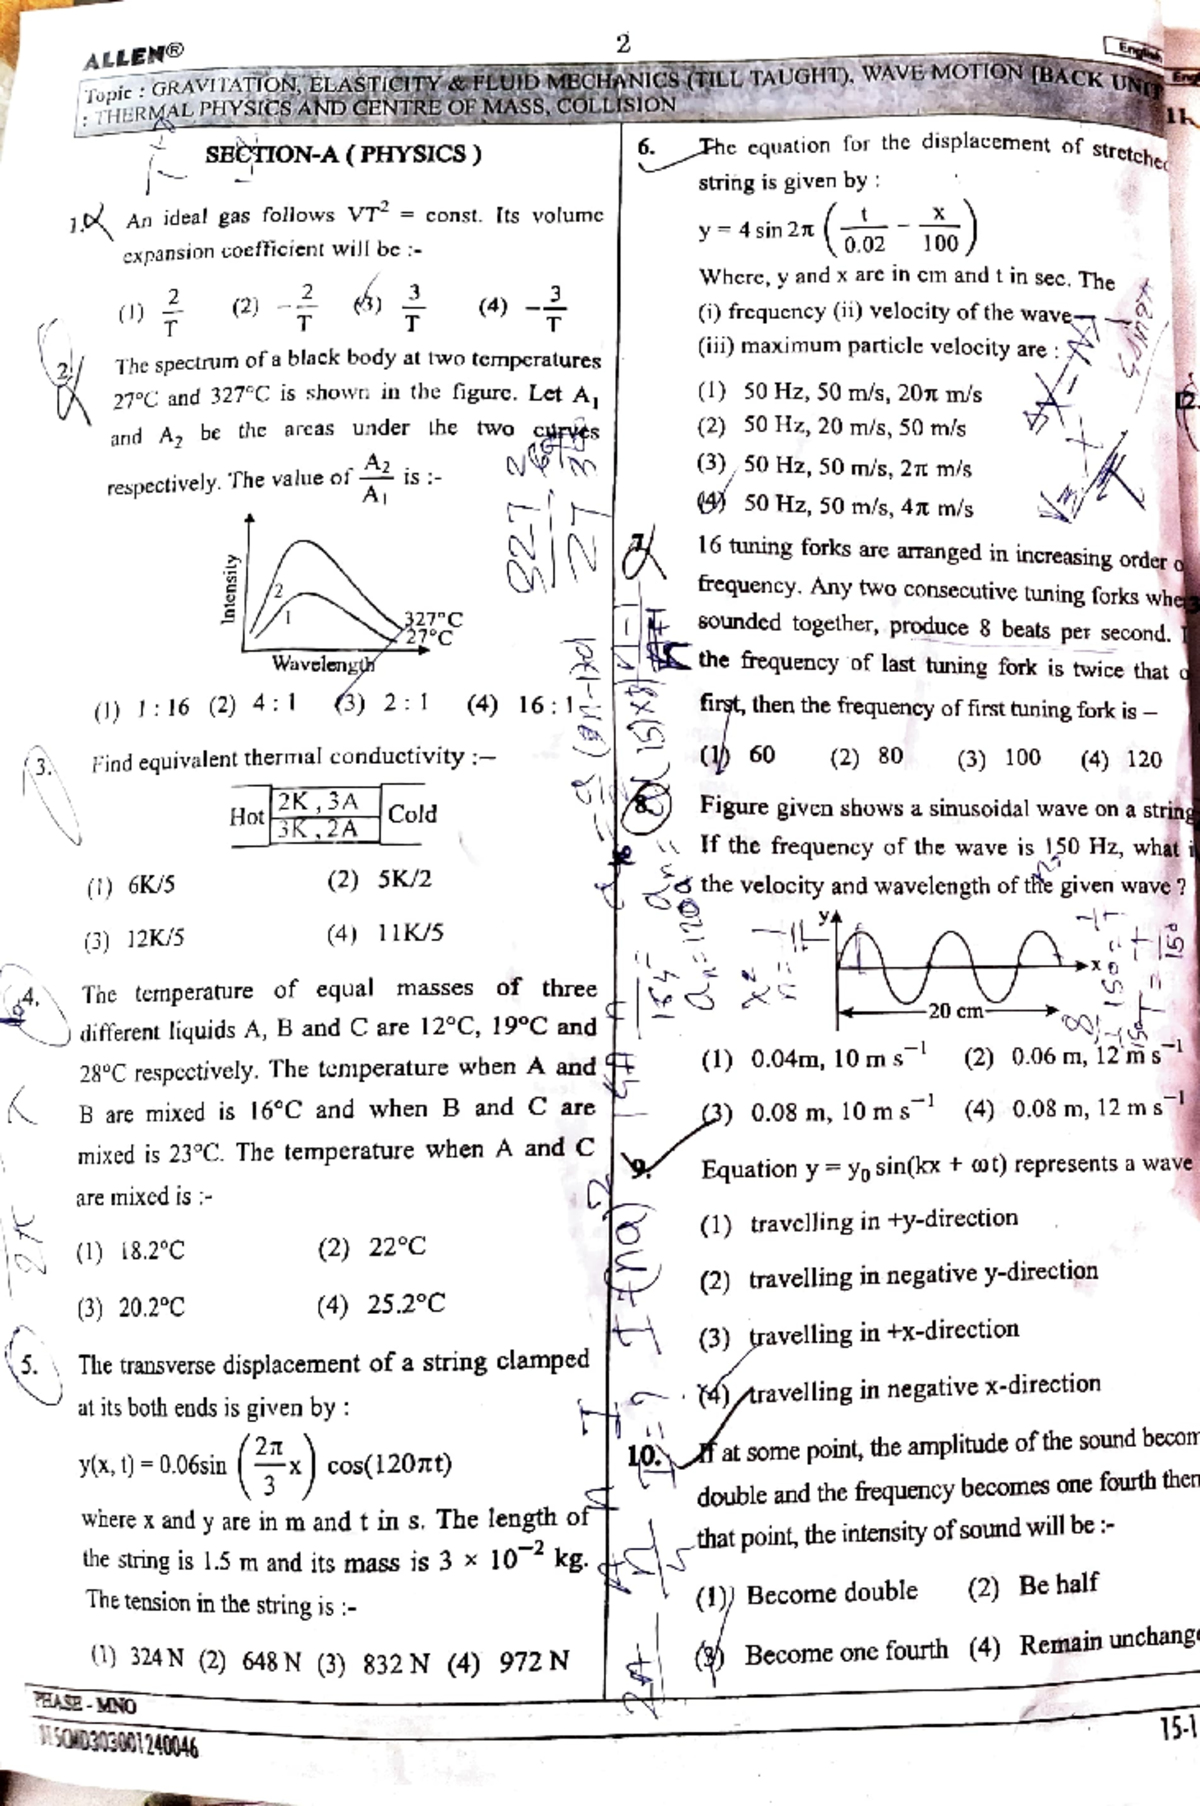 ALLEN®
2
English
Topic : GRAVITATION, ELASTICITY & FLUID MECHANICS (TILL TAUGHT), WAVE MOTION [BACK UNIT
: THERMAL PHYSICS AND CENTRE OF MASS, COLLISION
SECTION-A ( PHYSICS )
1. An ideal gas follows VT² = const. Its volume
expansion coefficient will be :-
(1) 2/T (2) -2/T (3) 3/T (4) -3/T
2. The spectrum of a black body at two temperatures
27°C and 327°C is shown in the figure. Let A₁
and A₂ be the areas under the two curves
respectively. The value of A₂/A₁ is :-
Intensity
2
1
327°C
27°C
Wavelength
(1) 1 : 16 (2) 4 : 1 (3) 2 : 1 (4) 16 : 1
3. Find equivalent thermal conductivity :–
Hot 2K , 3A Cold
3K , 2A
(1) 6K/5 (2) 5K/2
(3) 12K/5 (4) 11K/5
4. The temperature of equal masses of three
different liquids A, B and C are 12°C, 19°C and
28°C respectively. The temperature when A and
B are mixed is 16°C and when B and C are
mixed is 23°C. The temperature when A and C
are mixed is :-
(1) 18.2°C (2) 22°C
(3) 20.2°C (4) 25.2°C
5. The transverse displacement of a string clamped
at its both ends is given by :
y(x, t) = 0.06sin (2π/3 x) cos(120πt)
where x and y are in m and t in s. The length of
the string is 1.5 m and its mass is 3 × 10⁻² kg.
The tension in the string is :-
(1) 324 N (2) 648 N (3) 832 N (4) 972 N
6. The equation for the displacement of stretched
string is given by :
y = 4 sin 2π (t/0.02 − x/100)
Where, y and x are in cm and t in sec. The
(i) frequency (ii) velocity of the wave
(iii) maximum particle velocity are :
(1) 50 Hz, 50 m/s, 20π m/s
(2) 50 Hz, 20 m/s, 50 m/s
(3) 50 Hz, 50 m/s, 2π m/s
(4) 50 Hz, 50 m/s, 4π m/s
7. 16 tuning forks are arranged in increasing order o
frequency. Any two consecutive tuning forks whe
sounded together, produce 8 beats per second. I
the frequency of last tuning fork is twice that o
first, then the frequency of first tuning fork is –
(1) 60 (2) 80 (3) 100 (4) 120
8. Figure given shows a sinusoidal wave on a string
If the frequency of the wave is 150 Hz, what i
the velocity and wavelength of the given wave ?
y
x
20 cm
(1) 0.04m, 10 m s⁻¹ (2) 0.06 m, 12 m s⁻¹
(3) 0.08 m, 10 m s⁻¹ (4) 0.08 m, 12 m s⁻¹
9. Equation y = y₀ sin(kx + ωt) represents a wave
(1) travelling in +y-direction
(2) travelling in negative y-direction
(3) travelling in +x-direction
(4) travelling in negative x-direction
10. If at some point, the amplitude of the sound becom
double and the frequency becomes one fourth then
that point, the intensity of sound will be :-
(1) Become double (2) Be half
(3) Become one fourth (4) Remain unchange
PHASE - MNO
15-1